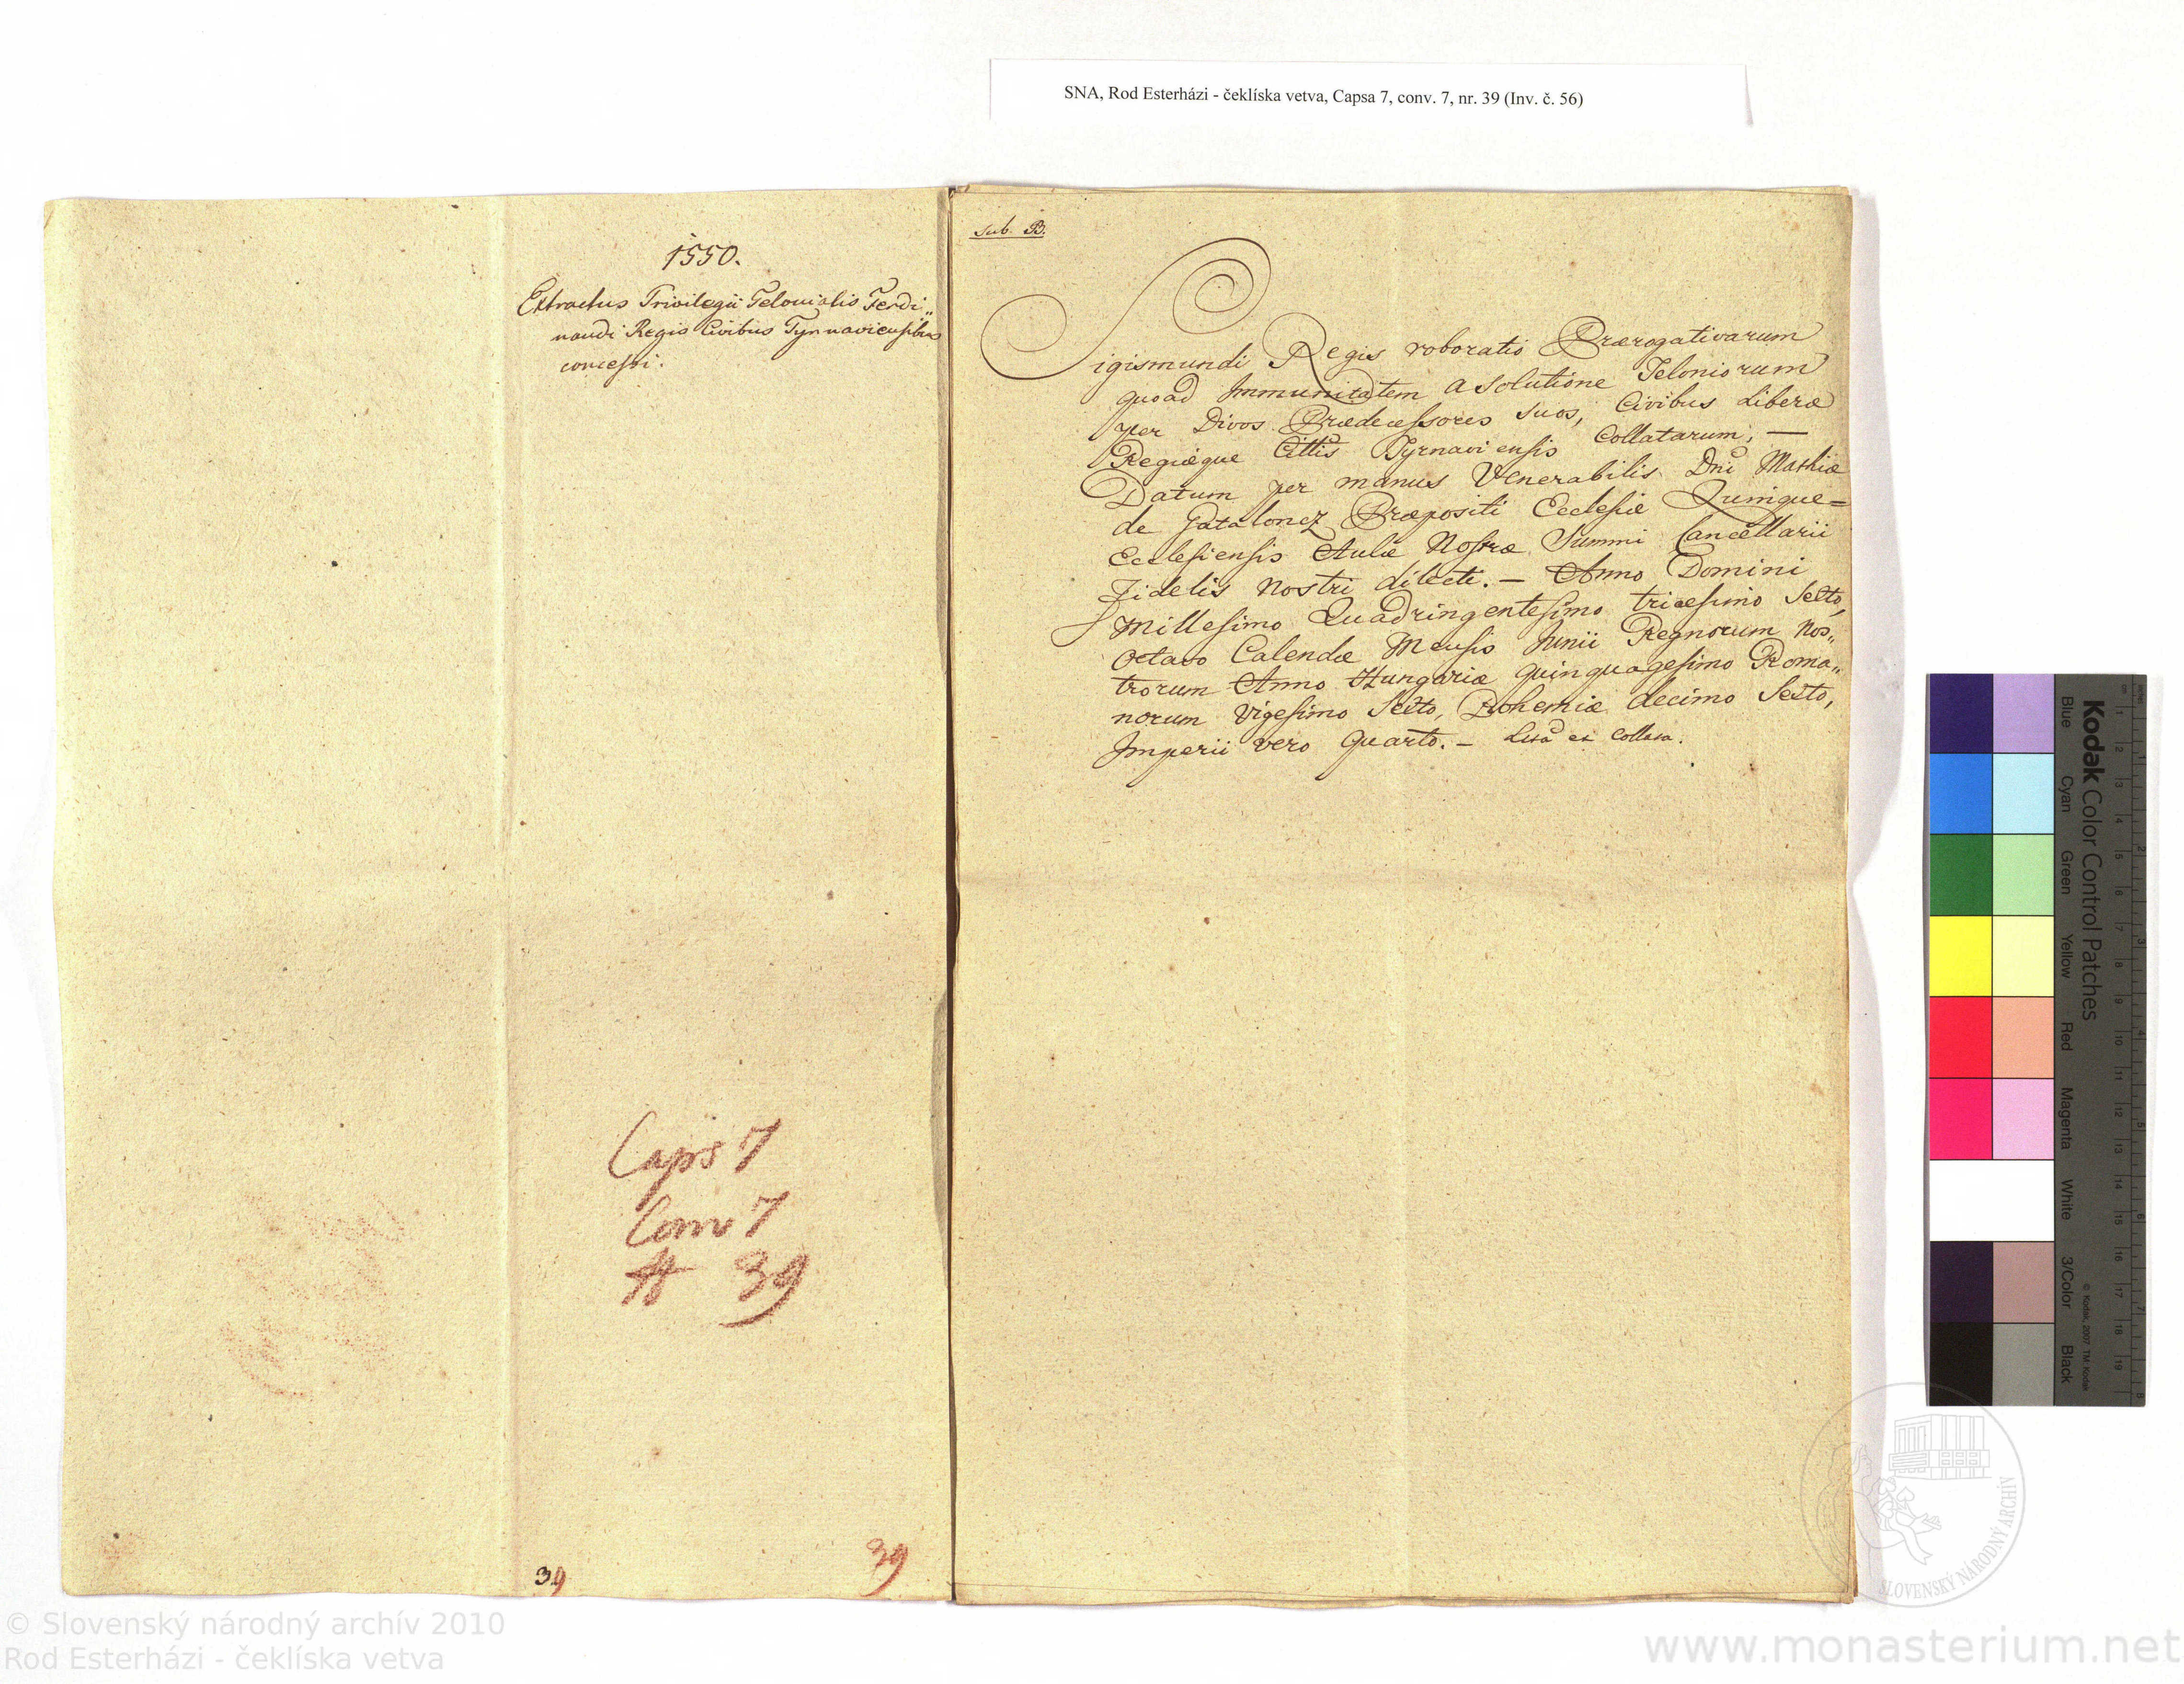 SNA, Rod Esterházi - čeklíska vetva, Capsa 7, conv. 7, nr. 39 (Inv. č. 56)
1550.
Extractus Privilegii Telonialis Ferdi„
nandi Regis Civibus Tyrnaviensibus
concessi.
Caps 7
Conv 7
# 39
39
39
sub. B.
Sigismundi Regis roboratio Prærogativarum
quoad Immunitatem a Solutione Teloniorum
per Divos Prædecessores suos, Civibus Liberæ
Regiæque Cittis Tyrnaviensis Collatarum, —
Datum per manus Venerabilis Dni Mathiæ
de Gatalonez Præpositi Ecclesiæ Quinque=
Ecclesiensis Aulæ Nostræ Summi Cancellarii
Fidelis Nostri dilecti. — Anno Domini
Millesimo Quadringentesimo tricesimo Sexto,
Octavo Calendæ Mensis Junii Regnorum Nos„
trorum Anno Hungariæ quinquagesimo Roma„
norum Vigesimo Sexto, Bohemiæ decimo Sexto,
Imperii vero Quarto. — Lecta et Collata.
Kodak Color Control Patches
Blue Cyan Green Yellow Red Magenta White 3/Color Black
© Kodak, 2007 TM: Kodak
SLOVENSKÝ NÁRODNÝ ARCHÍV
© Slovenský národný archív 2010
Rod Esterházi - čeklíska vetva
www.monasterium.net